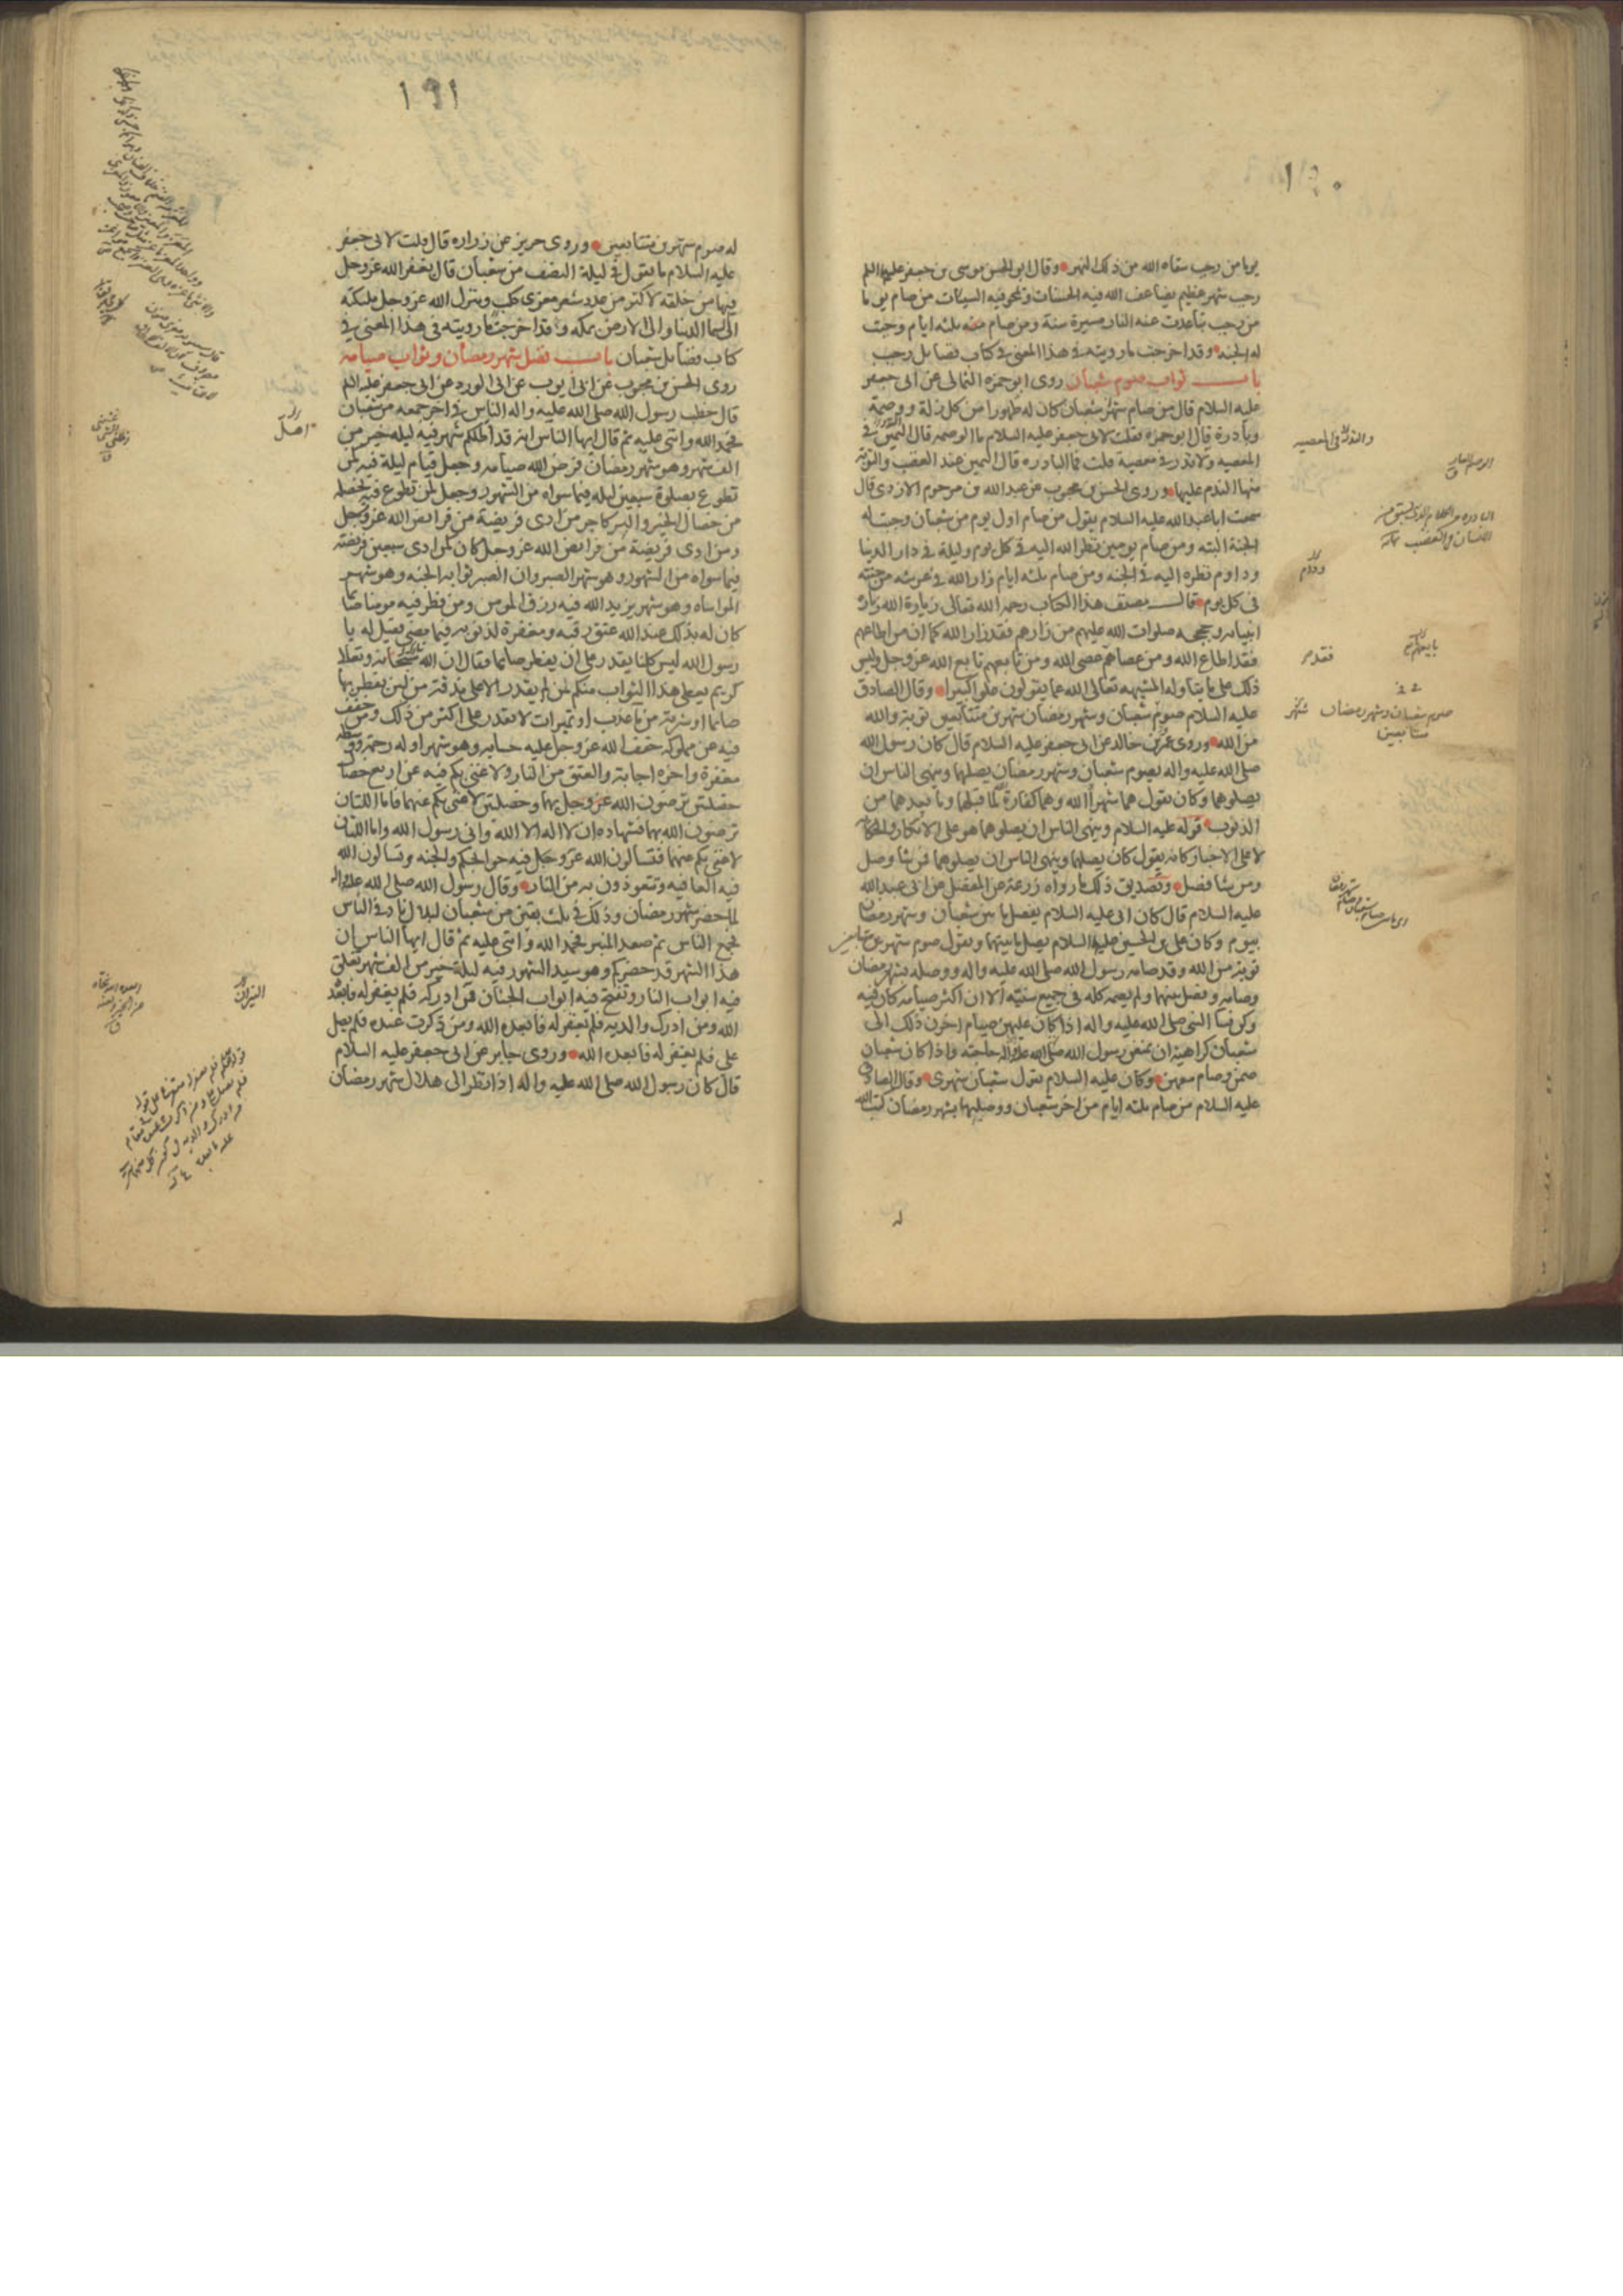 ١٩٠
يوما من رجب سقاه الله من ذلك النهر وقال ابو الحسن موسى بن جعفر عليهما السلم
رجب شهر عظيم يضاعف الله فيه الحسنات ويمحو فيه السيئات من صام يوما
من رجب تباعدت عنه النار مسيرة سنة ومن صام منه ثلثه ايام وجبت
له الجنه وقد اخرجت ما رويته فى هذا المعنى فى كتاب فضايل رجب
باب ثواب صوم شعبان روى ابو حمزه الثمالى عن ابى جعفر
عليه السلام قال من صام شهر شعبان كان له طهورا من كل زلة ووصمة
وبادرة قال ابو حمزه فقلت لابى جعفر عليه السلام ما الوصمه قال اليمين فى
المعصيه ولا نذر فى معصية قلت فما البادره قال اليمين عند الغضب والتوبة
منها الندم عليها وروى الحسن بن محبوب عن عبد الله بن مرحوم الازدى قال
سمعت ابا عبد الله عليه السلام يقول من صام اول يوم من شعبان وجبت له
الجنة البته ومن صام يومين نظر الله اليه فى كل يوم وليلة فى دار الدنيا
ودام نظره اليه فى الجنه ومن صام ثلثه ايام زار الله فى عرشه من جنته
فى كل يوم قال مصنف هذا الكتاب رحمه الله تعالى زيارة الله زيارة
انبيائه وحججه صلوات الله عليهم من زارهم فقد زار الله كما ان من اطاعهم
فقد اطاع الله ومن عصاهم عصى الله ومن تابعهم تابع الله عز وجل وليس
ذلك على ما يتاوله المشبهه تعالى الله عما يقولون علوا كبيرا وقال الصادق
عليه السلام صوم شعبان وشهر رمضان شهرين متتابعين توبة والله
من الله وروى عمرو بن خالد عن ابى جعفر عليه السلام قال كان رسول الله
صلى الله عليه واله يصوم شعبان وشهر رمضان يصلهما وينهى الناس ان
يصلوهما وكان يقول هما شهرا الله وهما كفارة لما قبلهما وما بعدهما من
الذنوب قوله عليه السلام وينهى الناس ان يصلوهما هو على الانكار والحكاية
لا على الاخبار كانه يقول كان يصلهما وينهى الناس ان يصلوهما فمن شا وصل
ومن شا فصل وتصديق ذلك ما رواه زرعة عن المفضل عن ابى عبد الله
عليه السلام قال كان ابى عليه السلام يفصل ما بين شعبان وشهر رمضان
بيوم وكان على بن الحسين عليه السلام يصل ما بينهما ويقول صوم شهرين متتابعين
توبة من الله وقد صامه رسول الله صلى الله عليه واله ووصله بشهر رمضان
وصامه وفصل بينهما ولم يصمه كله فى جميع سنيه الا ان اكثر صيامه كان فيه
وكن نسا النبى صلى الله عليه واله اذا كان عليهن صيام اخرن ذلك الى
شعبان كراهية ان يمنعن رسول الله صلى الله عليه واله حاجته واذا كان شعبان
صمن وصام معهن وكان عليه السلام يقول شعبان شهرى وقال الصادق
عليه السلام من صام ثلثه ايام من اخر شعبان ووصلها بشهر رمضان كتب الله
له
والنذر فى المعصيه
ودوم
فقد
صوم شعبان وشهر رمضان شهرين
متتابعين
١٩١
له صوم شهرين متتابعين وروى حريز عن زراره قال قلت لابى جعفر
عليه السلام ما تقول فى ليلة النصف من شعبان قال يغفر الله عز وجل
فيها من خلقه لاكثر من عدد شعر معزى كلب وينزل الله عز وجل ملئكته
الى سما الدنيا والى الارض بمكه وقد اخرجت ما رويته فى هذا المعنى فى
كتاب فضايل شعبان باب فضل شهر رمضان وثواب صيامه
روى الحسن بن محبوب عن ابى ايوب عن ابى الورد عن ابى جعفر عليه السلم
قال خطب رسول الله صلى الله عليه واله الناس فى اخر جمعه من شعبان
فحمد الله واثنى عليه ثم قال ايها الناس انه قد اظلكم شهر فيه ليله خير من
الف شهر وهو شهر رمضان فرض الله صيامه وجعل قيام ليلة فيه كمن
تطوع بصلوة سبعين ليله فيما سواه من الشهور وجعل لمن تطوع فيه بخصلة
من خصال الخير والبر كاجر من ادى فريضة من فرايض الله عز وجل
ومن ادى فريضة من فرايض الله عز وجل كان كمن ادى سبعين فريضه
فيما سواه من الشهور وهو شهر الصبر وان الصبر ثوابه الجنه وهو شهر
المواساه وهو شهر يزيد الله فيه رزق المومن ومن فطر فيه مومنا صائما
كان له بذلك عند الله عتق رقبه ومغفرة لذنوبه فيما مضى فقيل له يا
رسول الله ليس كلنا يقدر على ان يفطر صايما فقال ان الله سبحانه وتعالى
كريم يعطى هذا الثواب منكم لمن لم يقدر الا على مذقة من لبن يفطر بها
صايما او شربة من ما عذب او تميرات لا يقدر على اكثر من ذلك ومن خفف
فيه عن مملوكه خفف الله عز وجل عليه حسابه وهو شهر اوله رحمة ووسطه
مغفرة واخره اجابة والعتق من النار ولا غنى بكم فيه عن اربع خصال
خصلتين ترضون الله عز وجل بهما وخصلتين لا غنى بكم عنهما فاما اللتان
ترضون الله بهما فشهاده ان لا اله الا الله وانى رسول الله واما اللتان
لا غنى بكم عنهما فتسالون الله عز وجل فيه حوايجكم والجنه وتسالون الله
فيه العافيه وتتعوذون به من النار وقال رسول الله صلى الله عليه واله
لما حضر شهر رمضان وذلك فى ثلث بقين من شعبان لبلال ناد فى الناس
فجمع الناس ثم صعد المنبر فحمد الله واثنى عليه ثم قال ايها الناس ان
هذا الشهر قد حضركم وهو سيد الشهور فيه ليلة خير من الف شهر تغلق
فيه ابواب النار وتفتح فيه ابواب الجنان فمن ادركه فلم يغفر له فابعده
الله ومن ادرك والديه فلم يغفر له فابعده الله ومن ذكرت عنده فلم يصل
على فلم يغفر له فابعده الله وروى جابر عن ابى جعفر عليه السلام
قال كان رسول الله صلى الله عليه واله اذا نظر الى هلال شهر رمضان
النيران